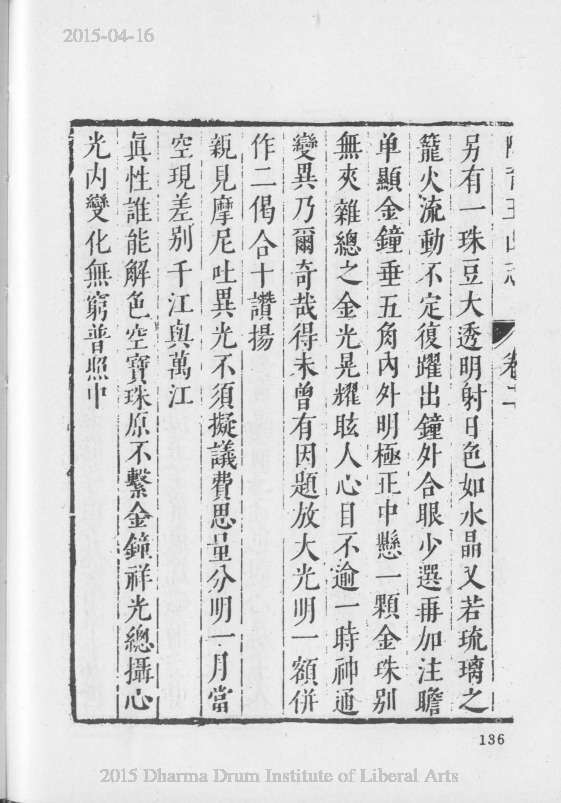 2015-04-16
卷二
另有一珠豆大透明射日色如水晶又若琉璃之
籠火流動不定復躍出鐘外合眼少選再加注瞻
单顯金鐘垂五角內外明極正中懸一顆金珠別
無夾雜總之金光晃耀眩人心目不逾一時神通
變異乃爾奇哉得未曾有因題放大光明一額併
作二偈合十讚揚
親見摩尼吐異光不須擬議費思量分明一月當
空現差別千江與萬江
眞性誰能解色空寶珠原不繫金鐘祥光總攝心
光內變化無窮普照中
136
2015 Dharma Drum Institute of Liberal Arts